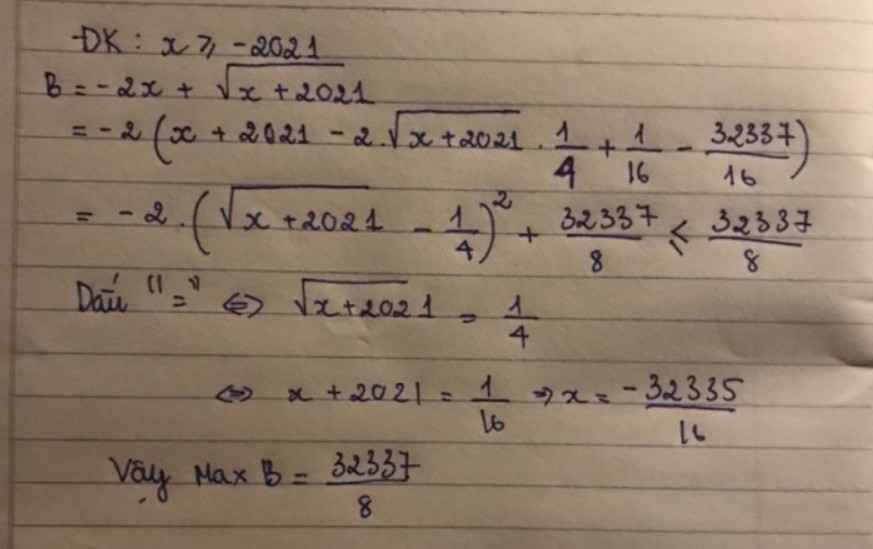 ĐK : x ⩾ -2021
B = -2x + √(x + 2021)
= -2 (x + 2021 - 2.√(x+2021) . 1/4 + 1/16 - 32337/16)
= -2 . (√(x+2021) - 1/4)² + 32337/8 ⩽ 32337/8
Dấu "=" ⇔ √(x+2021) = 1/4
⇔ x + 2021 = 1/16 ⇒ x = -32335/16
Vậy Max B = 32337/8